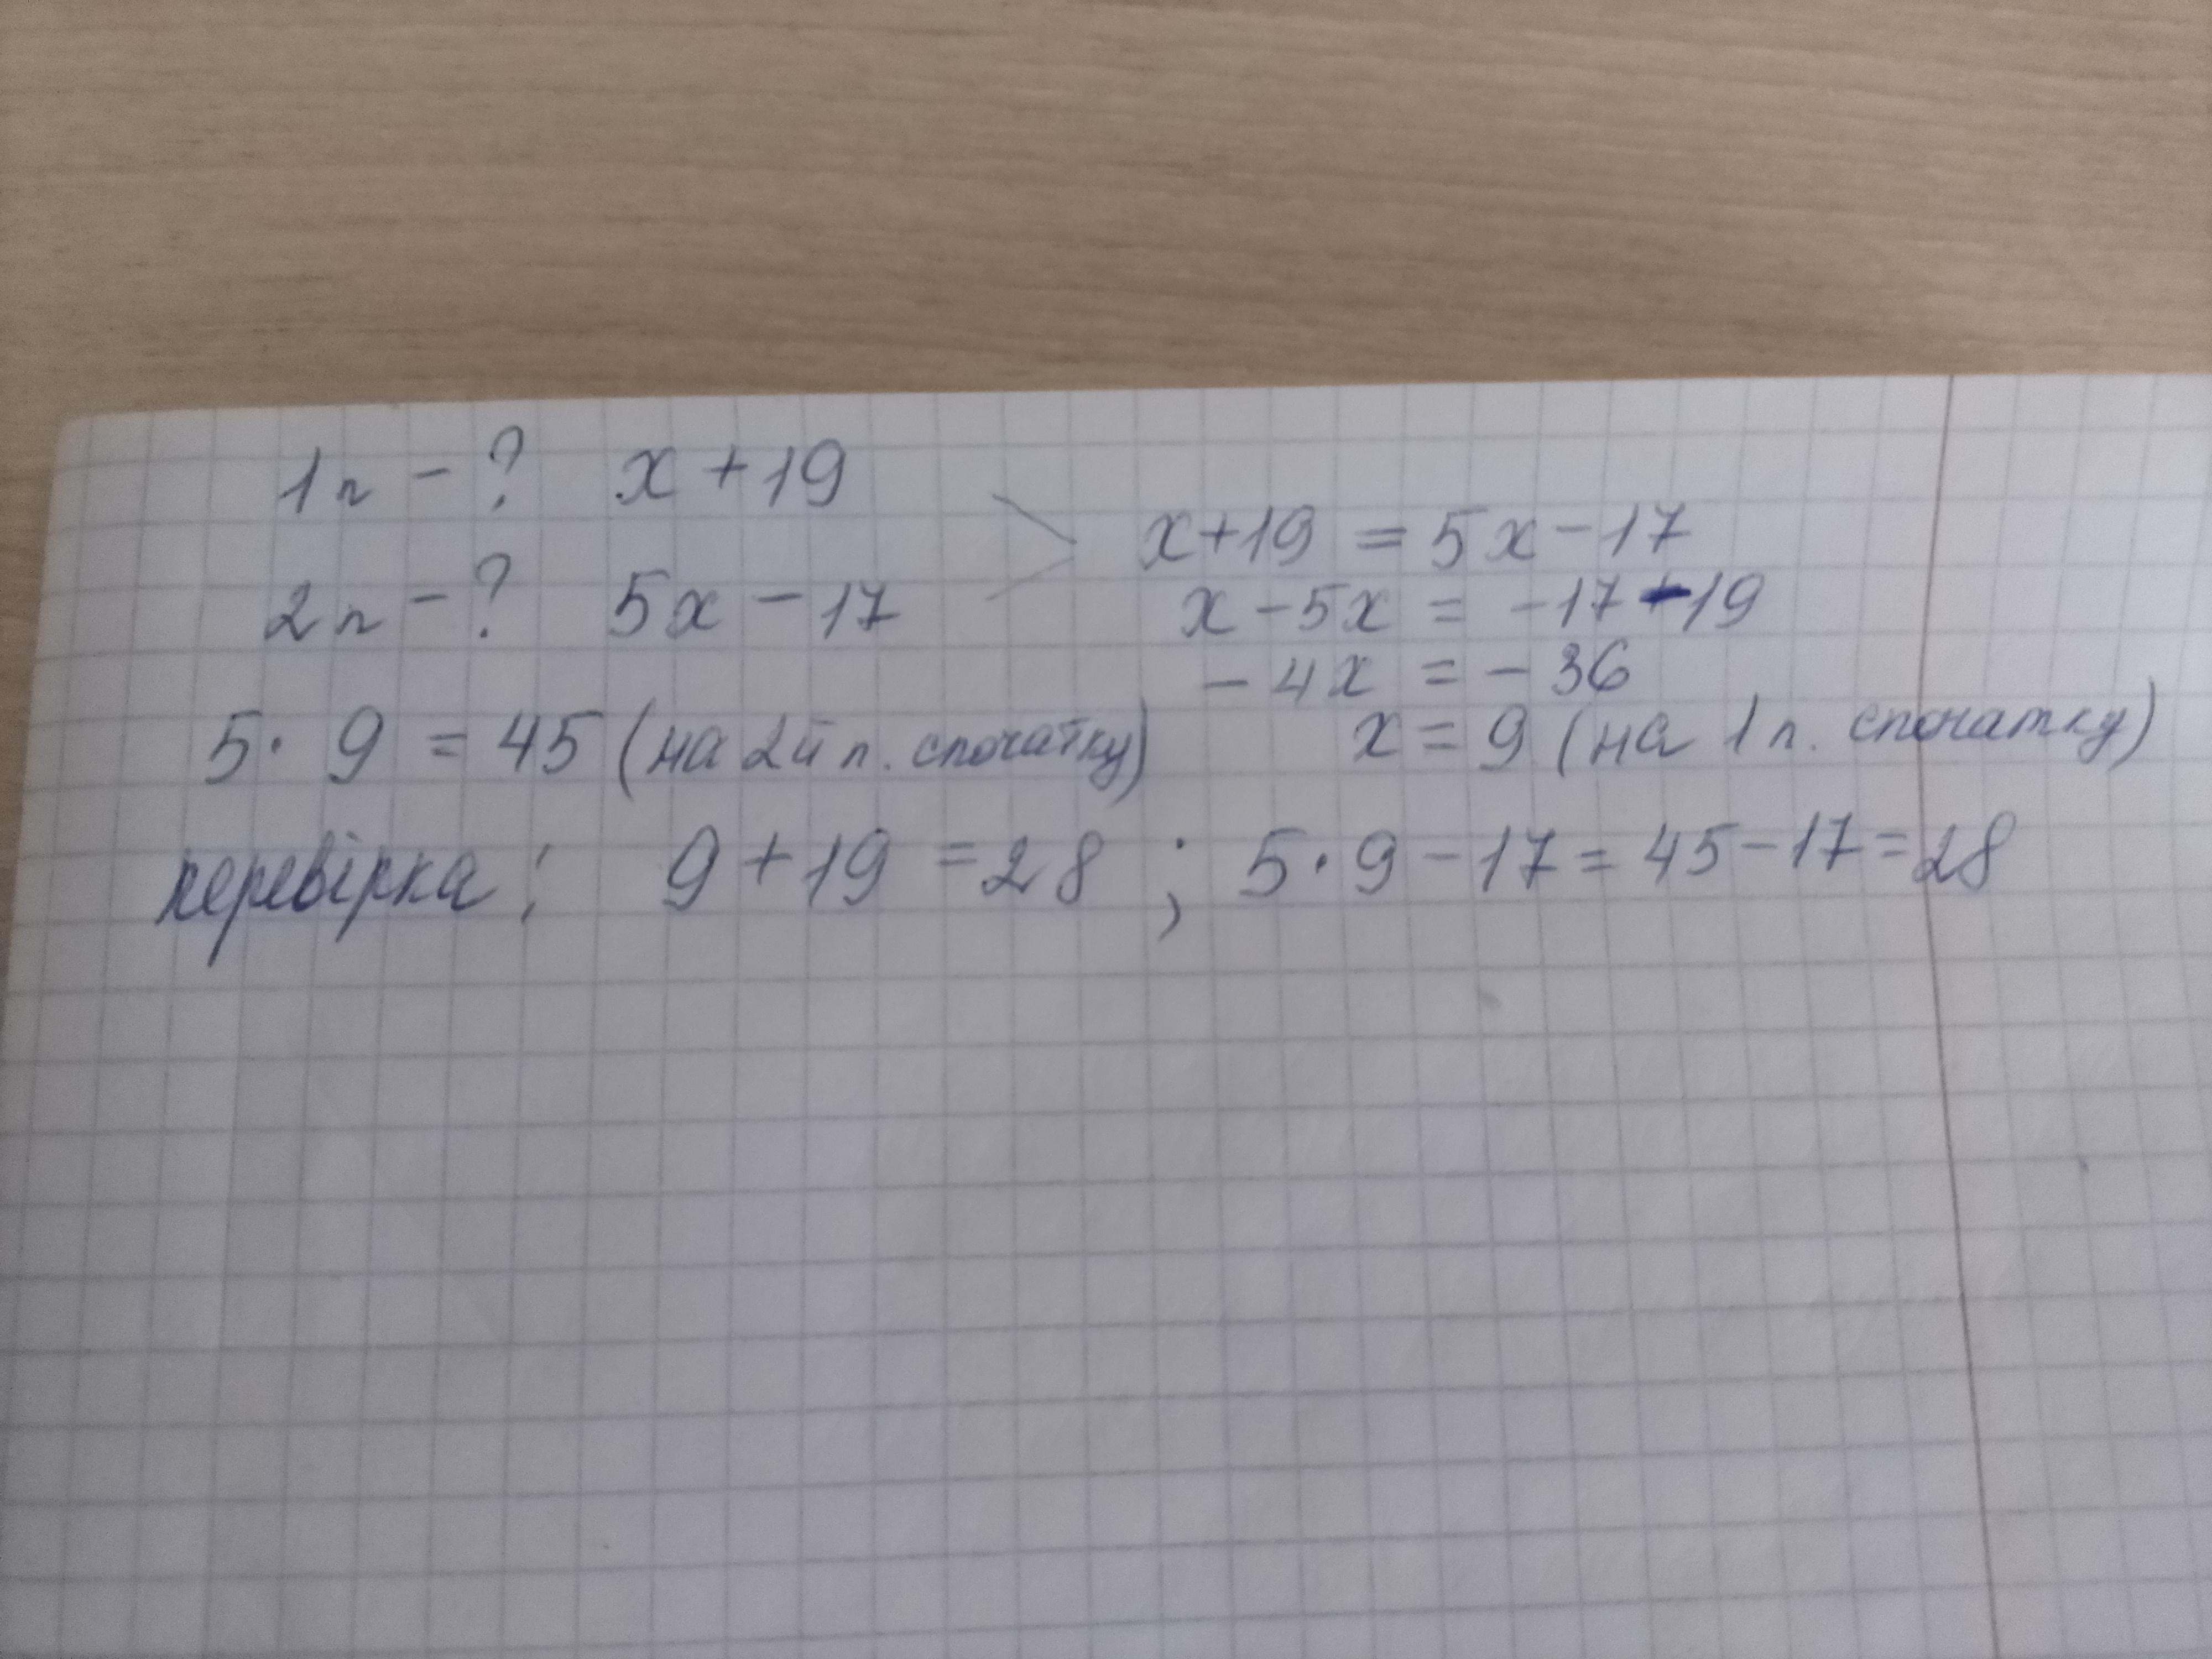 1п - ? x + 19
2п - ? 5x - 17
x + 19 = 5x - 17
x - 5x = -17 - 19
- 4x = - 36
x = 9 (на 1 п. спочатку)
5 · 9 = 45 (на 2й п. спочатку)
перевірка: 9 + 19 = 28 ; 5 · 9 - 17 = 45 - 17 = 28